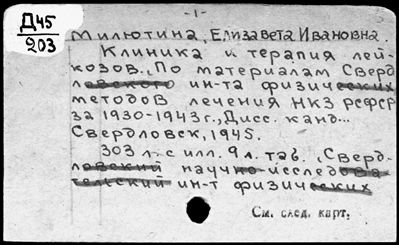 Д45
203
-1-
Милютина, Елизавета Ивановна.
Клиника и терапия лей-
козов. По материалам Сверд
ловского ин-та физических
методов лечения НКЗ РСФСР
за 1930-1943г., Дисс. канд...
Свердловск, 1945.
303 л. с илл. 9 л. таб. (Сверд-
ловский научно-исследова-
тельский ин-т физических
См. след. карт.